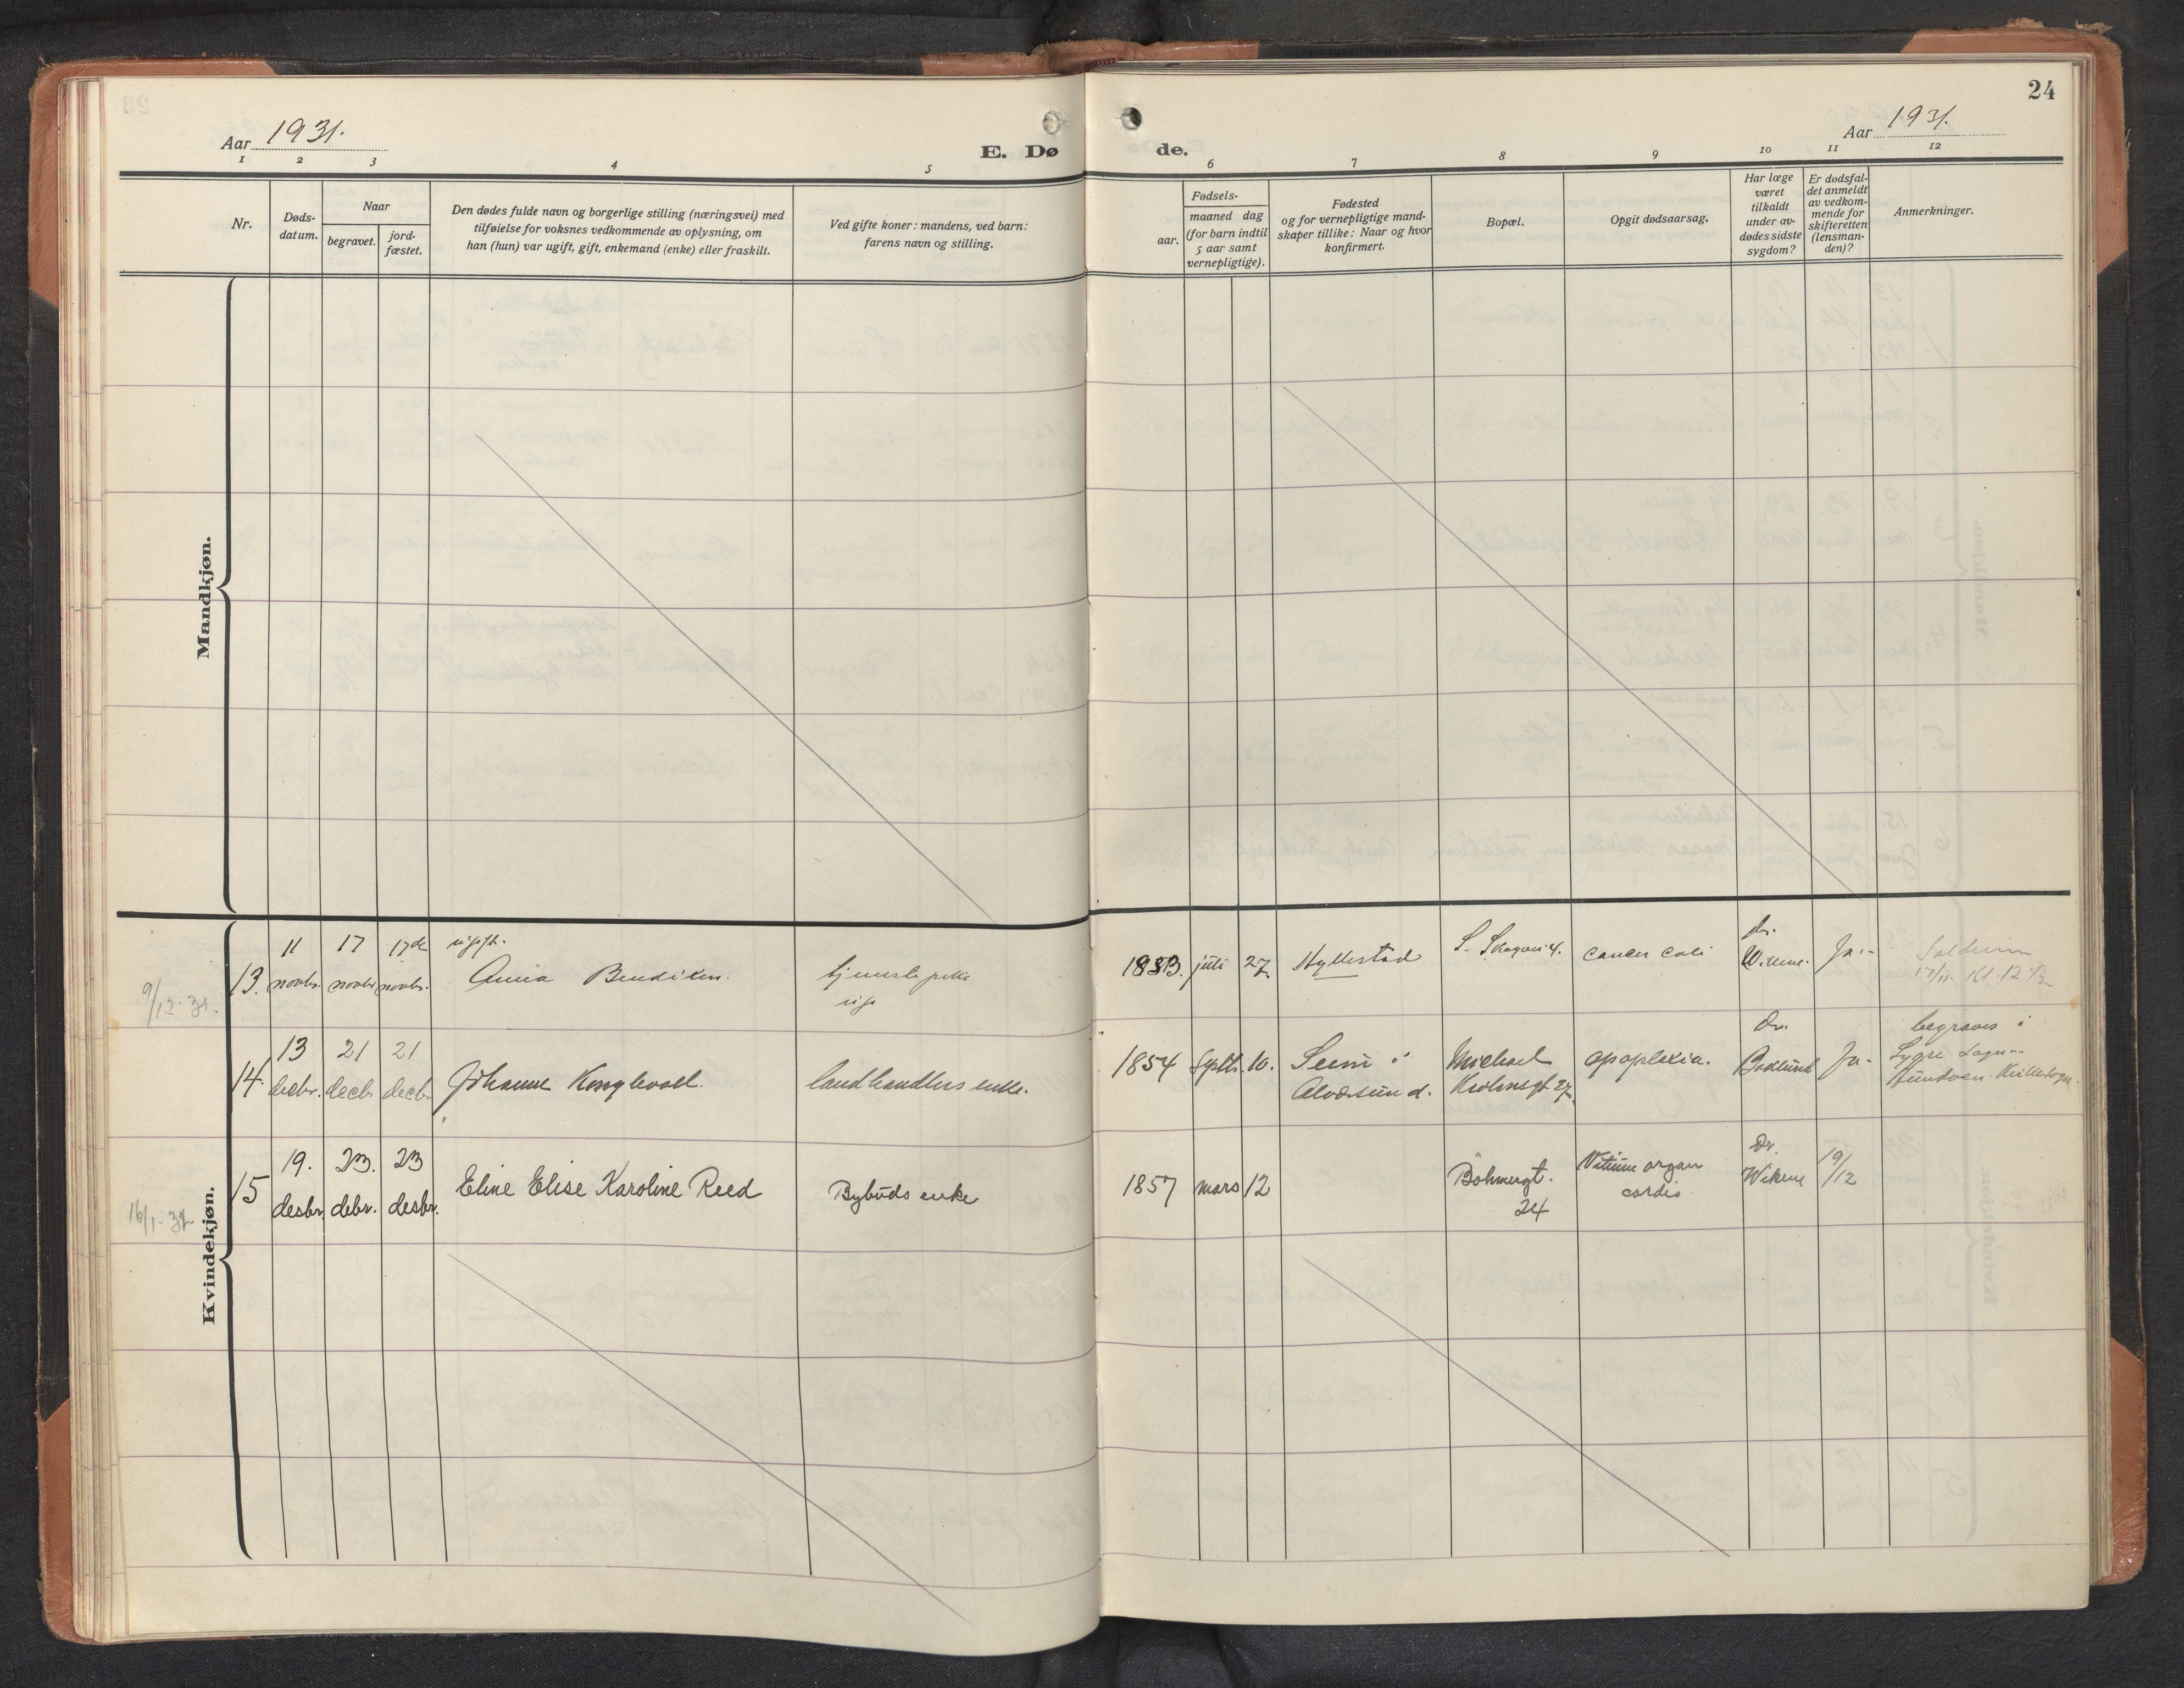 24
Aar 1931.
E. Dø
de.
Aar 1931.
1 2 3 4 5 6 7 8 9 10 11 12
Nr.
Døds-
datum.
Naar
begravet.
jord-
fæstet.
Den dødes fulde navn og borgerlige stilling (næringsvei) med
tilføielse for voksnes vedkommende av oplysning, om
han (hun) var ugift, gift, enkemand (enke) eller fraskilt.
Ved gifte koner: mandens, ved barn:
farens navn og stilling.
Fødsels-
aar.
maaned dag
(for barn indtil
5 aar samt
vernepligtige).
Fødested
og for vernepligtige mand-
skaper tillike: Naar og hvor
konfirmert.
Bopæl.
Opgit dødsaarsag.
Har læge
været
tilkaldt
under av-
dødes sidste
sygdom?
Er dødsfal-
det anmeldt
av vedkom-
mende for
skifteretten
(lensman-
den)?
Anmerkninger.
Mandkjøn.
Kvindekjøn.
9/12-31.
13.
11
novbr.
17
novbr.
17de
novbr.
ugift.
Anna Bendiken.
tjenestepike
juli
27
Hyllestad
cancer coli
dr.
Wikene.
Ja.-
Solheim
17/11. Kl. 12 1/2
14.
13
decbr.
21
decb.
21
decb.
Johanne Konglevoll.
landhandlers enke.
1854
Septb.
10.
Seim i
Alversund.
Michael
Krohnsgt 27.
apoplexia.
Dr.
Ja-
begraves i
16/1-32.
15
19.
desbr.
23.
debr.
23
desbr.
Eline Elise Karoline Reed
Bybuds enke
1857
mars
12
Böhmergt.
24
Vitium organ
cordis
Dr.
Wikene
19/12